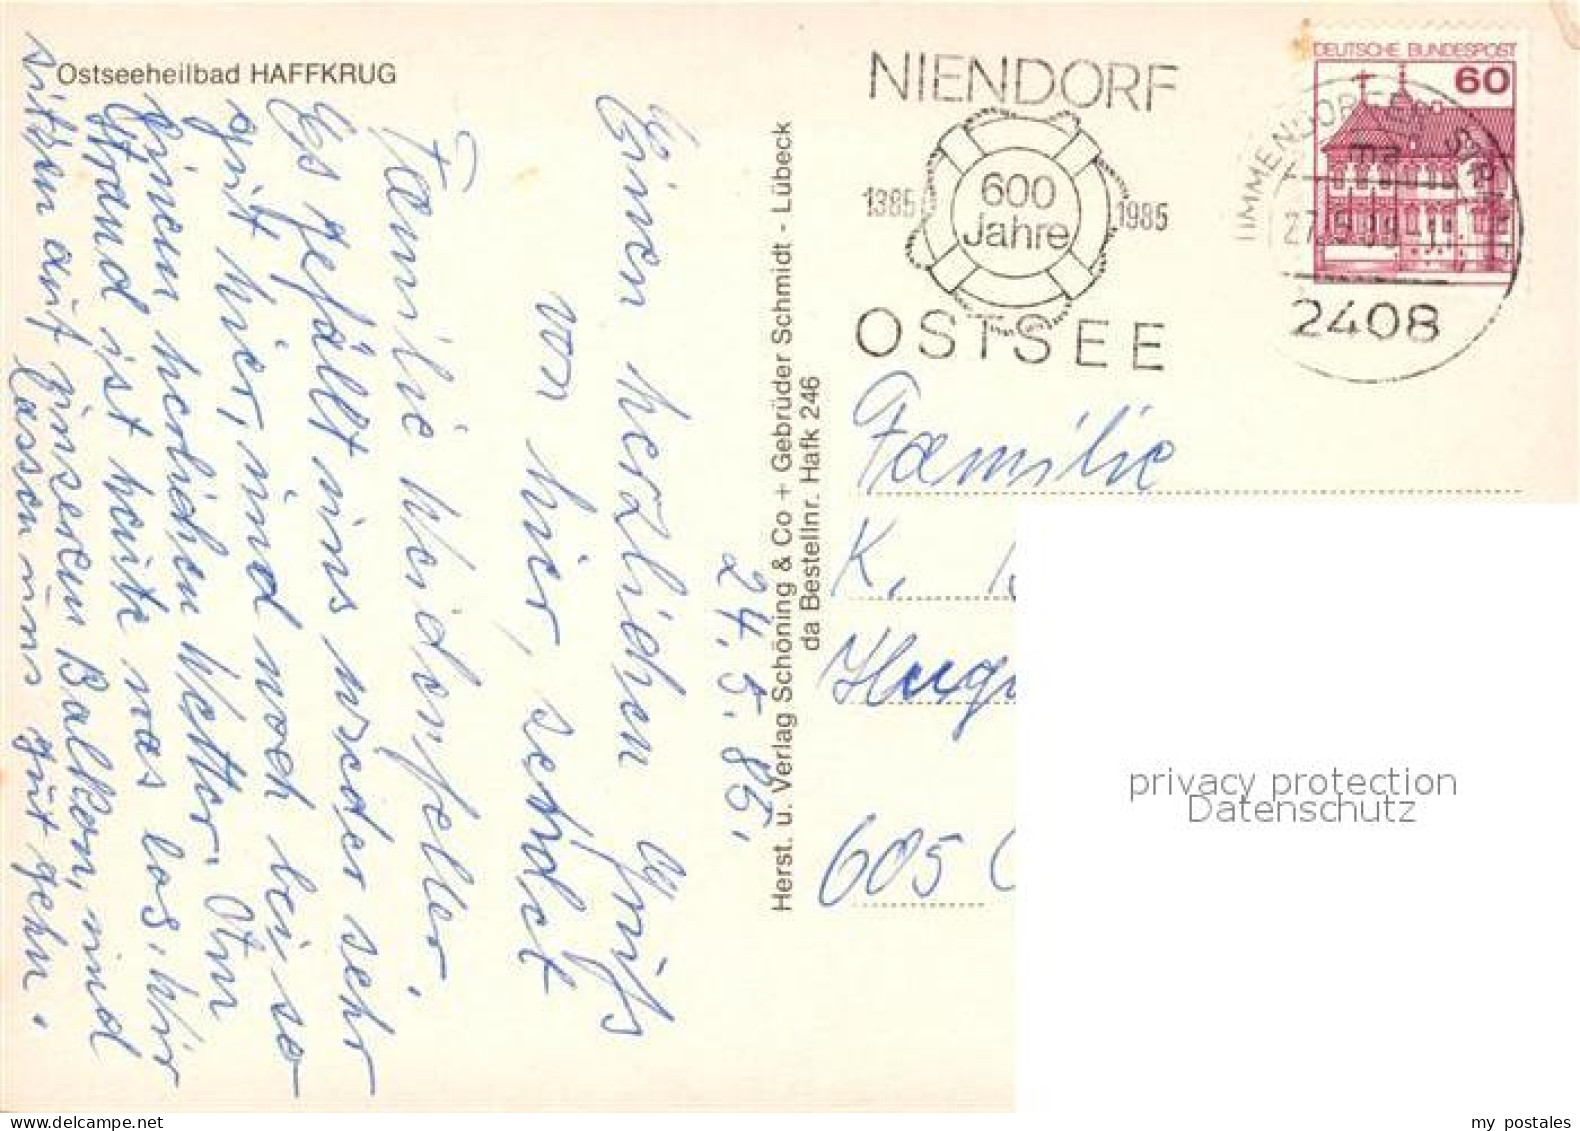 Ostseeheilbad HAFFKRUG
24.5.85.
Einen herzlichen Gruß
von hier, sendet
Familie Weidenfeller.
Es gefällt uns wieder sehr
gut hier, und noch bei so
einem herlichen Wetter. Am
Strand ist heute was los. Wir
sitzen auf unserem Balkon, und
lassen uns gut gehn.
Herst. u. Verlag Schöning & Co + Gebrüder Schmidt - Lübeck
da Bestellnr. Hafk 246
NIENDORF
1385 600 1985
Jahre
OSTSEE
DEUTSCHE BUNDESPOST
60
2408
Familie
K.
Hug
605
privacy protection
Datenschutz
my postales